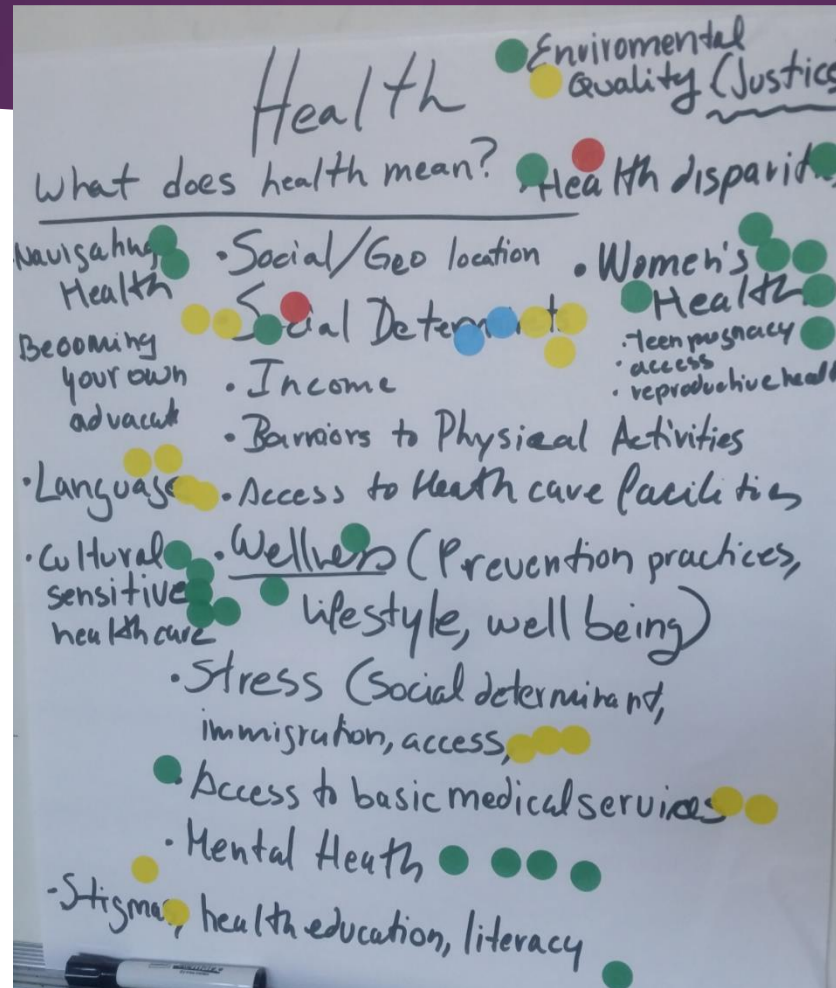 Health
Enviromental
Quality (Justice
What does health mean?
Health disparit
Navigating
Health
Becoming
your own
advacat
• Language
• Cultural
sensitive
health care
• Social/Geo location
Social Determinants
• Income
• Barriors to Physical Activities
• Access to Heath care facilities
• Wellness (Prevention practices,
lifestyle, well being)
• Women's
Health
• teen pregnacy
• access
• reproductive health
• Stress (social determinant,
immigration, access,
• Access to basic medical services
• Mental Heath
• Stigma, health education, literacy